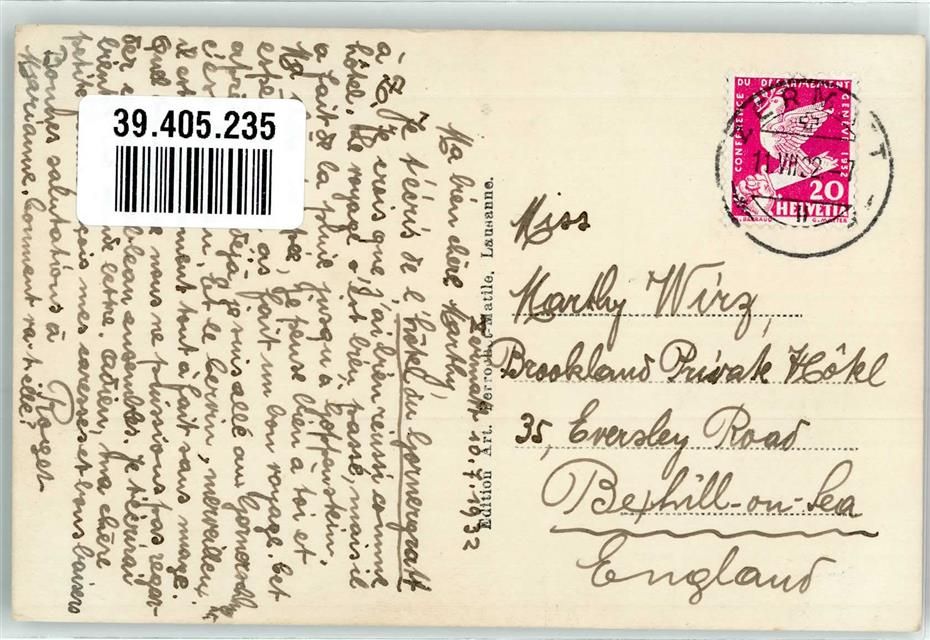 39.405.235
Zermatt 10.7.1932
Ma bien chère Marthy,
Je t'écris de l'hôtel du Gornergratt
à Z, je crois que j'ai bien réussi comme
hôtel. Le voyage s'est bien passé, mais il
a fait de la pluie jusqu'à Goppenstein.
Ma je pense bien à toi et
espè as fait un bon voyage. Cet
aprè déjà je suis allé au Gornergratt
c'é n. et le Cervin, merveilleux
il et ment tout à fait sans nuage.
Quel e nous ne puissions pas regar-
der bleau ensembles. Je t'écrirai
bient de lettre. Adieu, ma chère
petite çois mes caresses et bons baisers
Bonnes salutations à Roger
Marianne, comment va-t-elle?
Edition Art. Perrochet-Matile, Lausanne.
CONFÉRENCE DU DÉSARMEMENT GENÈVE 1932
20
HELVETIA
L. BARRAUD G. MATTER
ZERMATT
11.VII.32
Miss
Marthy Wirz,
Brookland Private Hôtel
35, Eversley Road
Bexhill-on-Sea
England